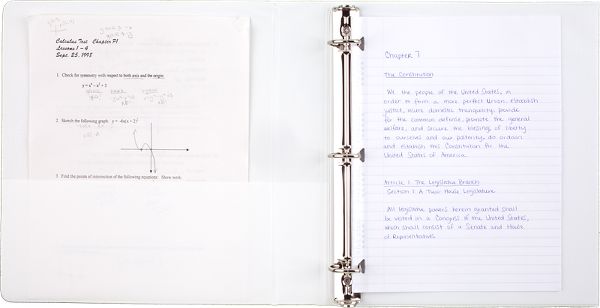 Calculus Test Chapter P1
Lessons 1 - 4
Sept. 25, 1998
1. Check for symmetry with respect to both axis and the origin.
2. Sketch the following graph.
3. Find the points of intersection of the following equations. Show work.
Chapter 7
The Constitution
We the people of the United States, in
order to form a more perfect Union, establish
justice, insure domestic tranquility, provide
for the common defense, promote the general
welfare, and secure the blessing of liberty
to ourselves and our posterity, do ordain
and establish this Constitution for the
United States of America.
Article I. The Legislative Branch
Section 1. A Two-House Legislature
All legislative powers herein granted shall
be vested in a Congress of the United States,
which shall consist of a Senate and House
of Representatives.